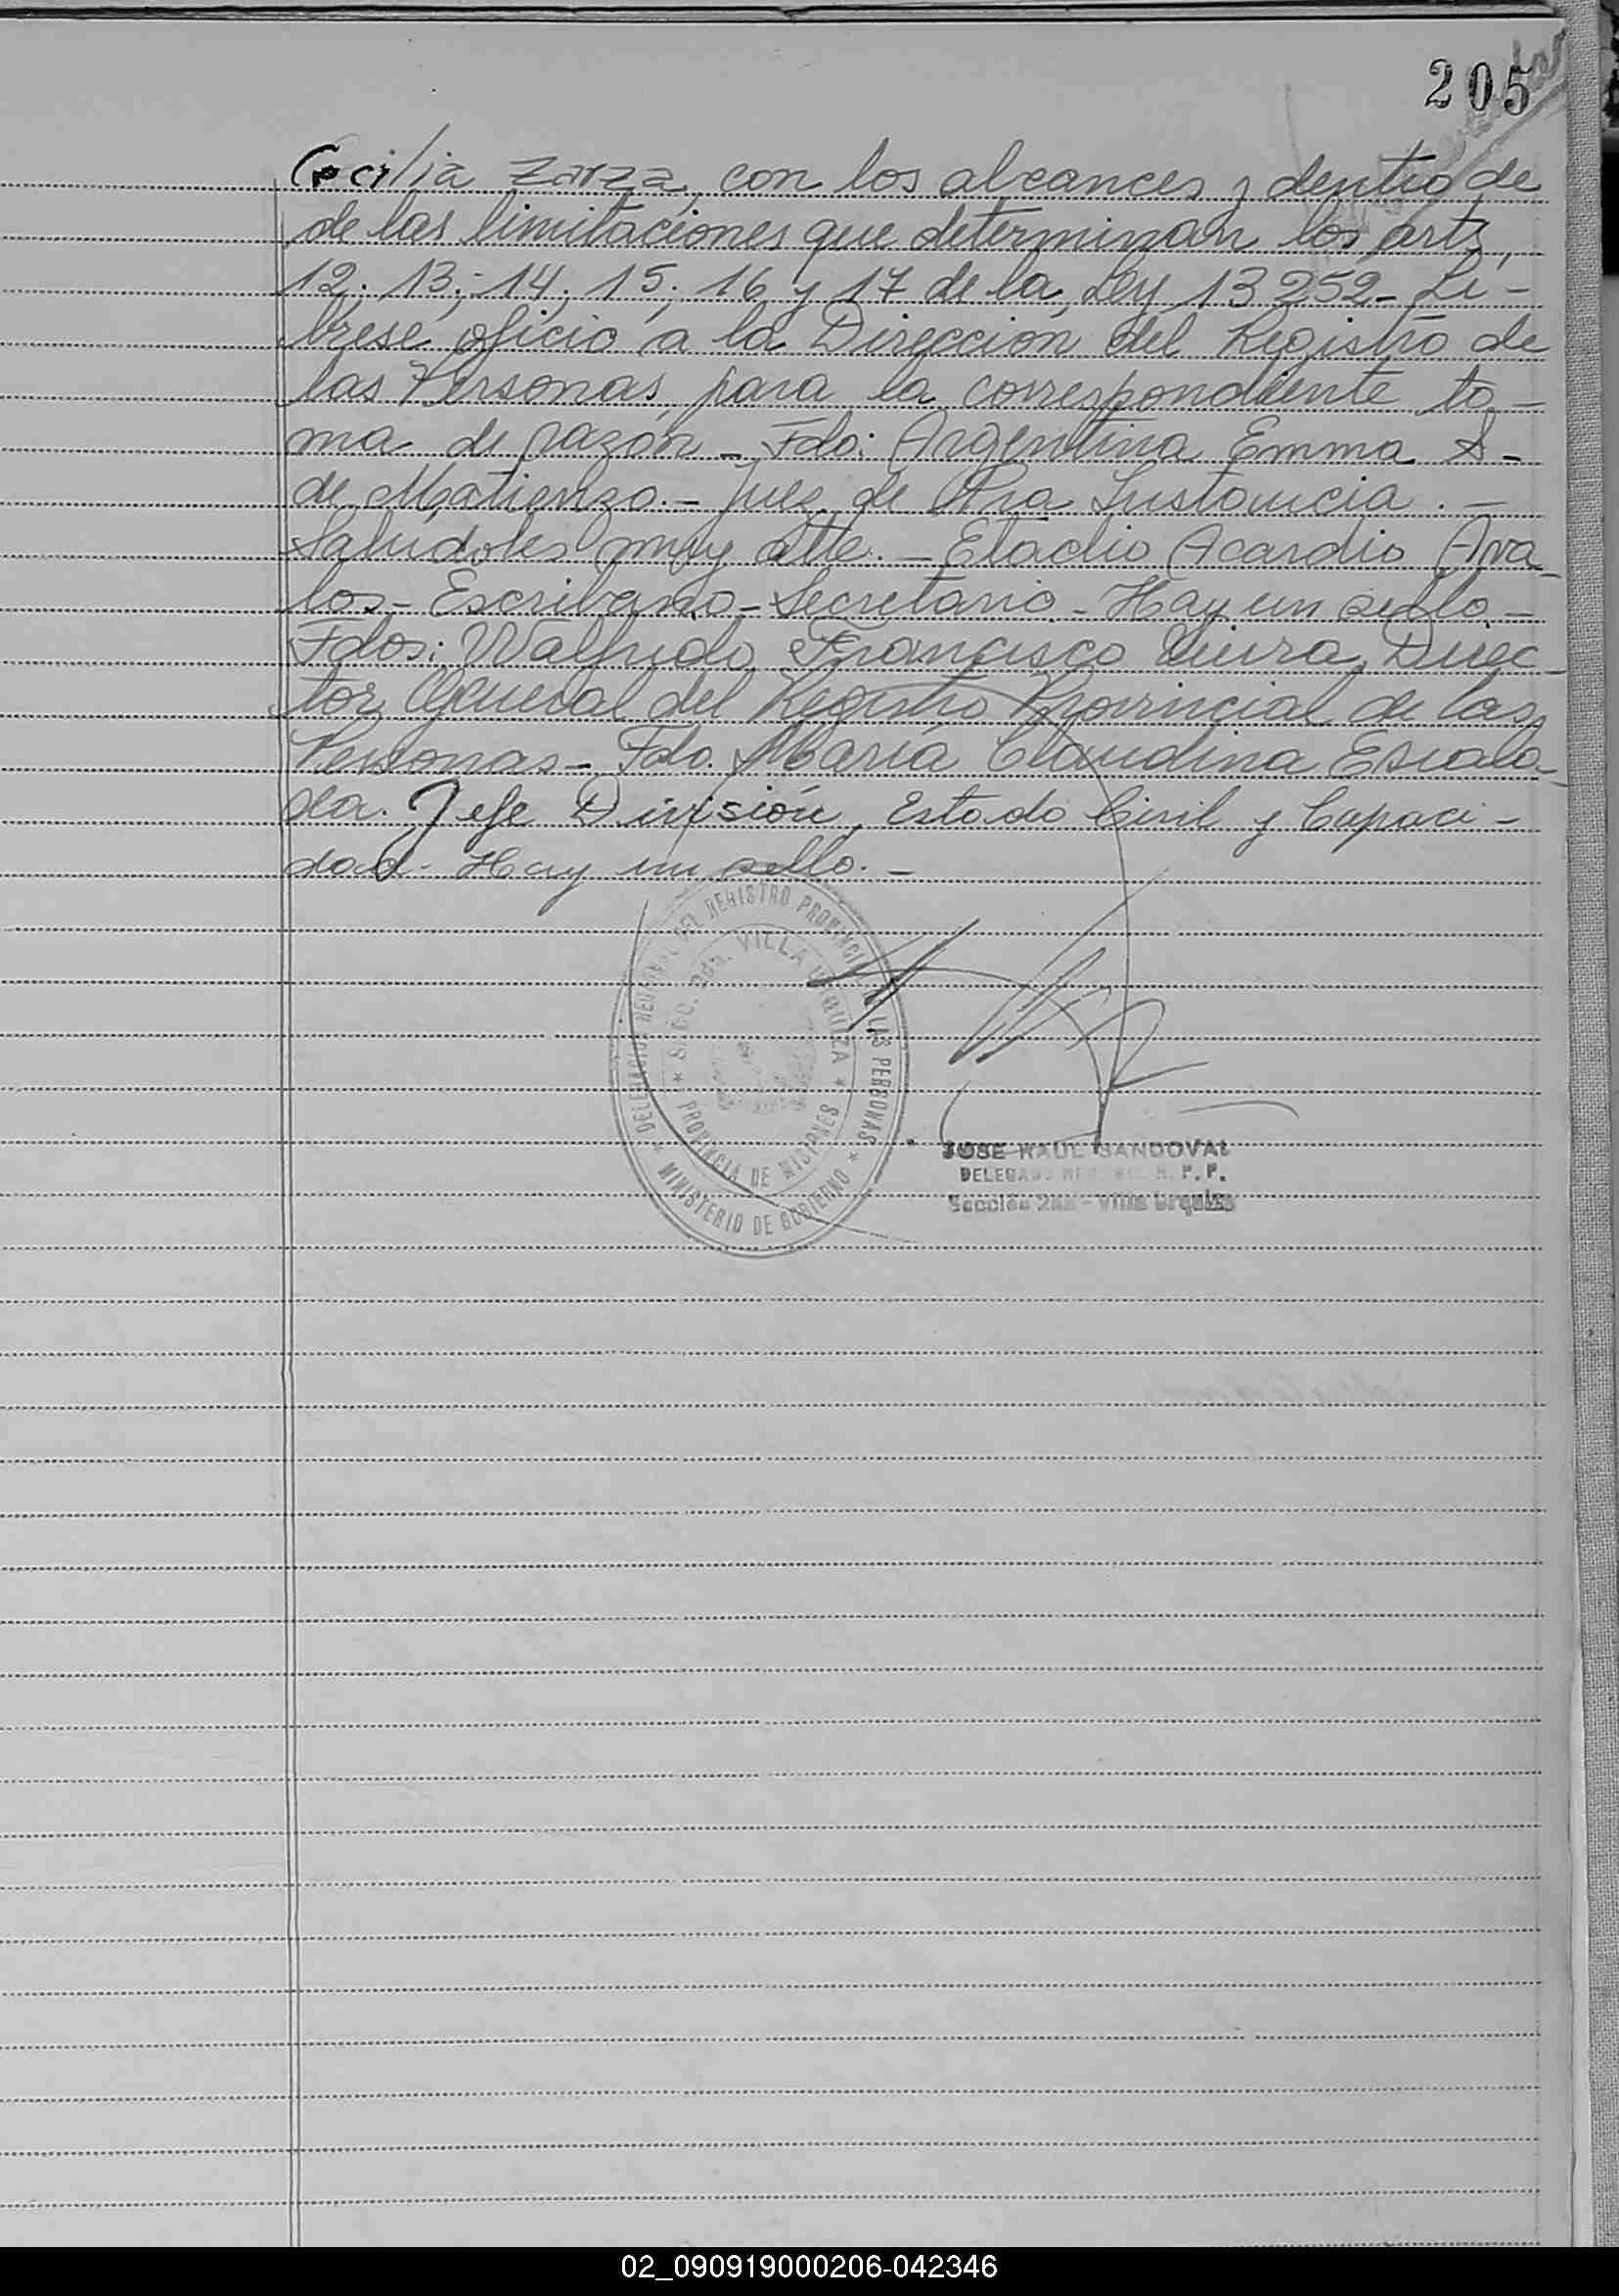 205
Cecilia Zarza, con los alcances y dentro de
de las limitaciones que determinan los arts,
12; 13; 14; 15; 16 y 17 de la Ley 13252- Li-
brese oficio a la Dirección del Registro de
las Personas para la correspondiente to-
ma de razón - Fdo: Argentina Emma S-
de Matienzo.- Juez de Pra Instancia. -
Saludoles muy atte. - Acardio Ava-
los- Escribano- Secretario- Hay un sello.-
Fdos: Walfrido Francisco Direc-
tor General del Registro Provincial de las
Personas- Fdo. María Claudina Escala-
da. Jefe División, Estado Civil y Capaci-
dad- Hay un sello. -
DELEGACION REGIONAL DEL REGISTRO PROVINCIAL DE LAS PERSONAS
* SECC. 2da. VILLA URQUIZA *
PROVINCIA DE MISIONES
* MINISTERIO DE GOBIERNO *
JOSE RAUL SANDOVAL
Sección 2da - Villa Urquiza
02_090919000206-042346